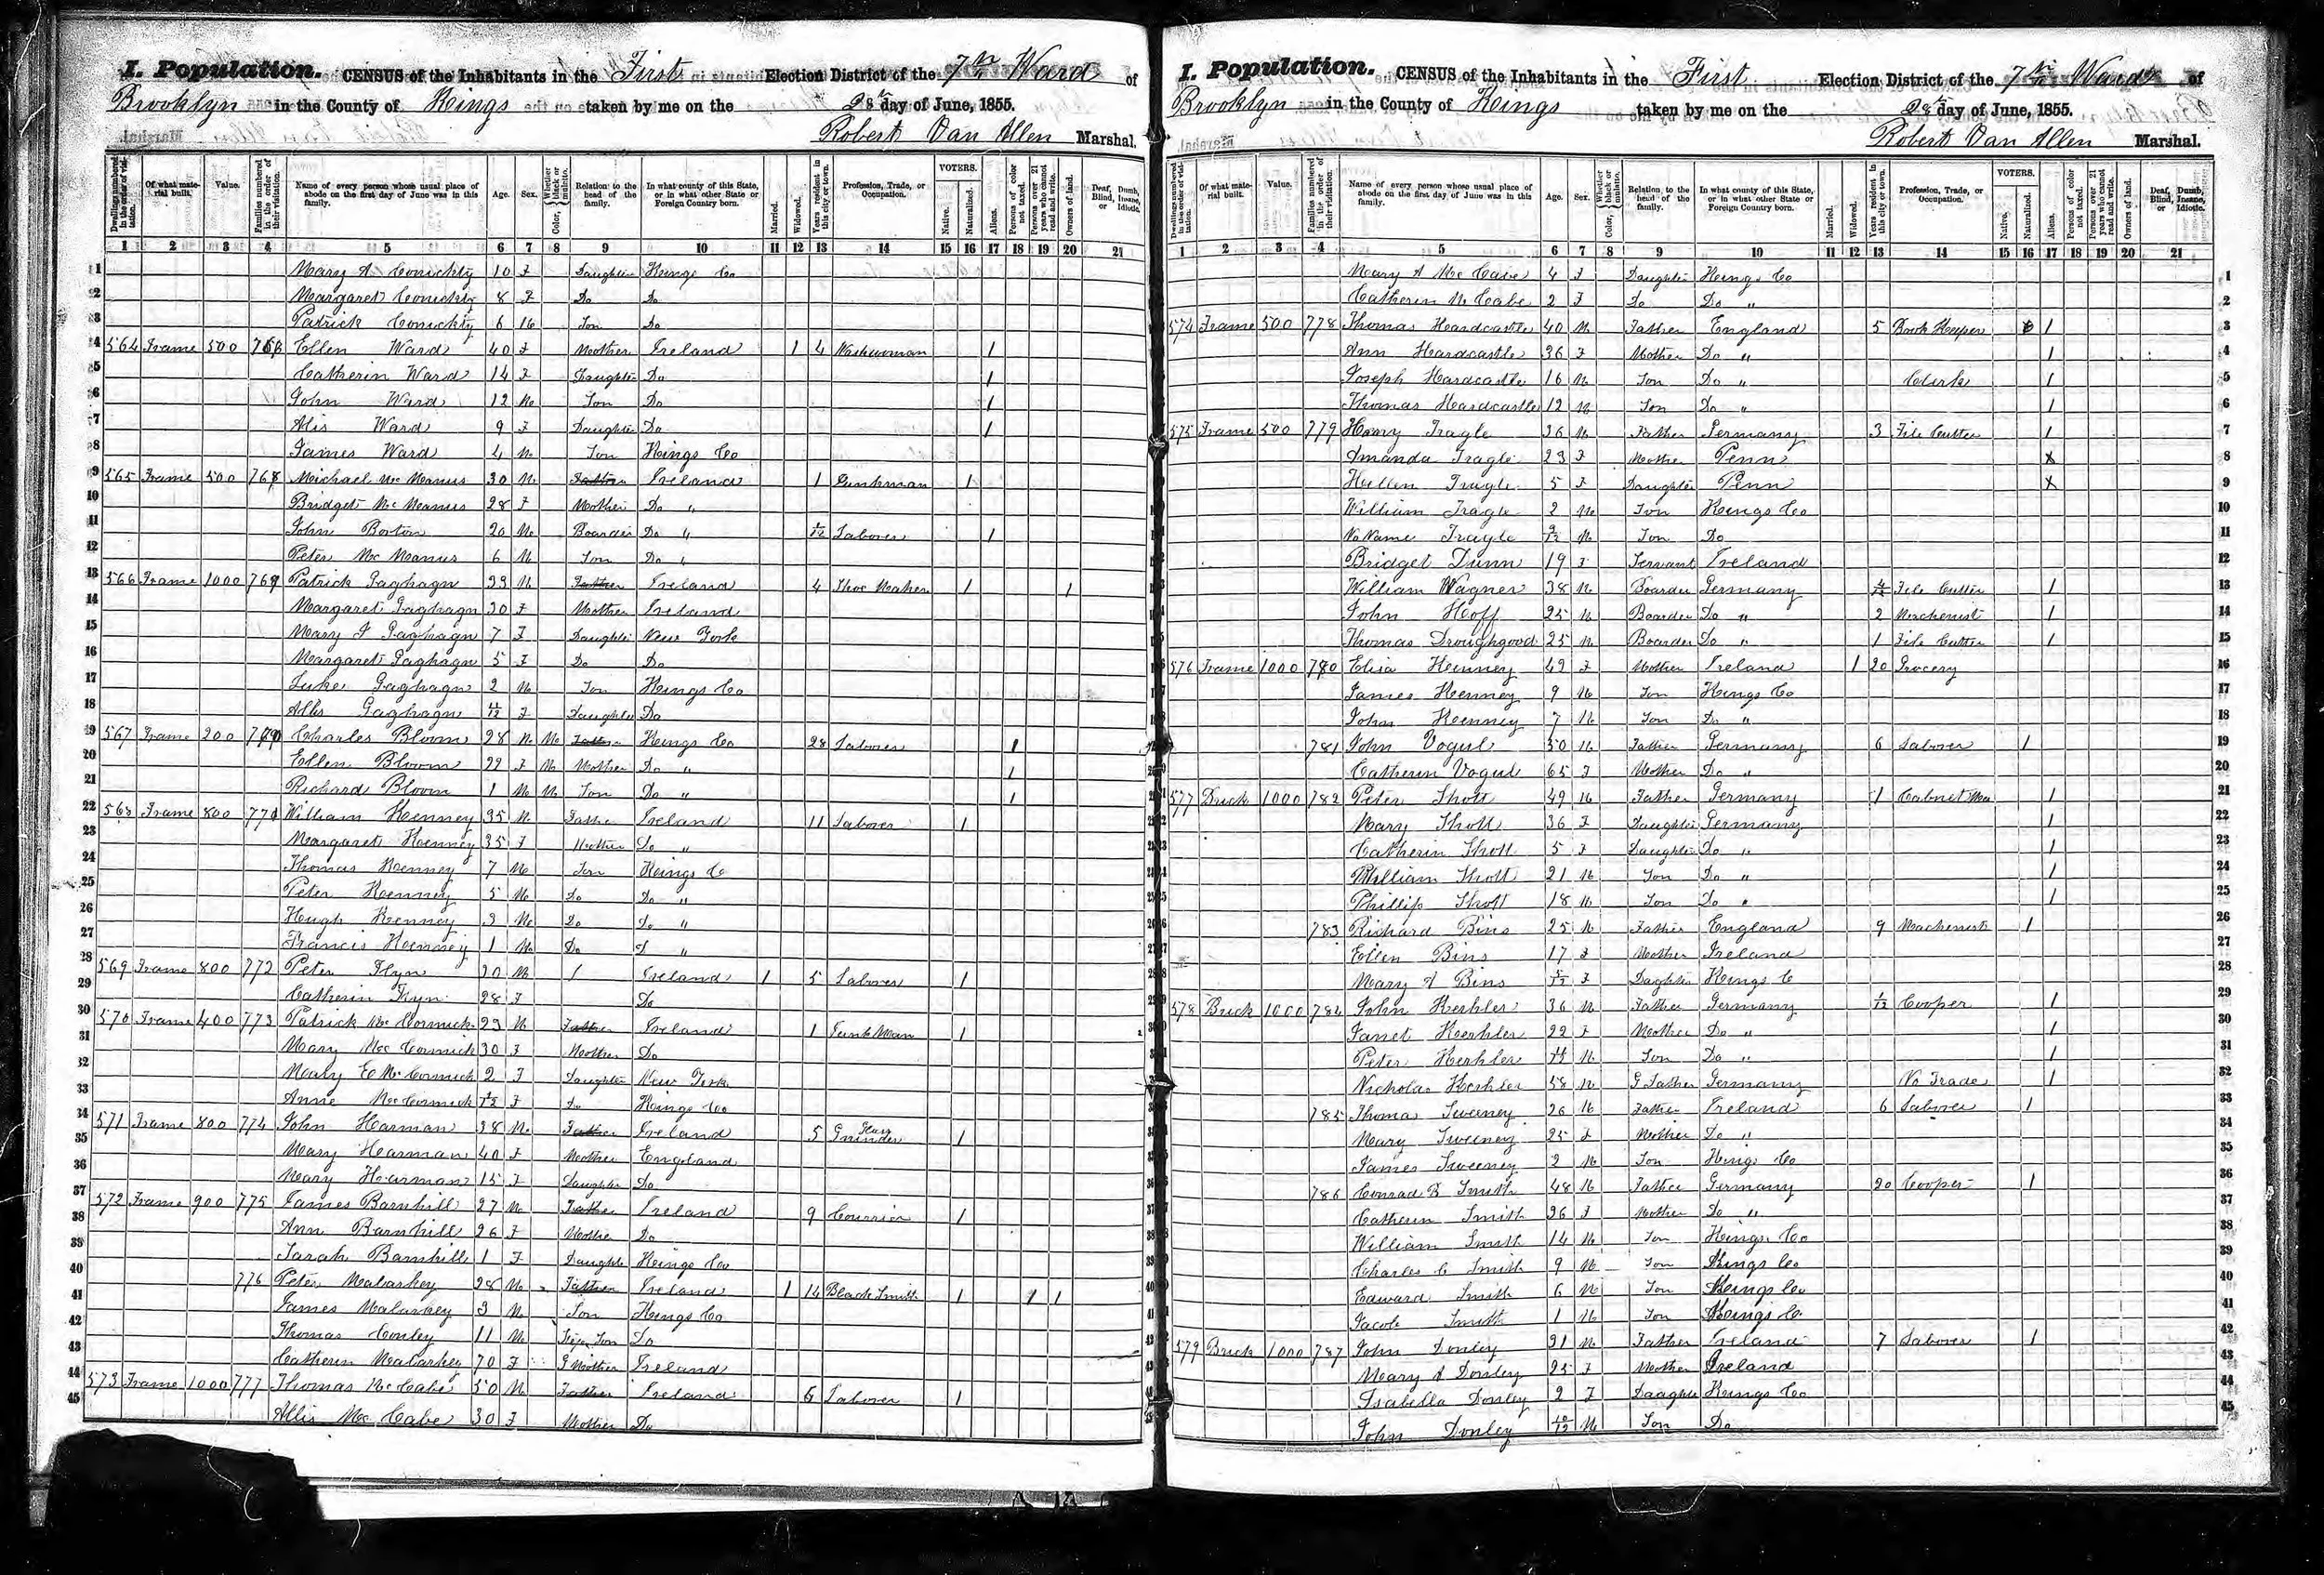 I. Population. CENSUS of the Inhabitants in the First Election District of the 7th Ward of
Brooklyn in the County of Kings taken by me on the 28th day of June, 1855.
Robert Van Allen Marshal.
Dwellings numbered in the order of visitation. Of what material built. Value. Families numbered in the order of their visitation. Name of every person whose usual place of abode on the first day of June was in this family. Age. Sex. Color, Whether black or mulatto. Relation to the head of the family. In what county of this State, or in what other State or Foreign Country born. Married. Widowed. Years resident in this city or town. Profession, Trade, or Occupation. VOTERS. Native. Naturalized. Aliens. Persons of color not taxed. Persons over 21 years who cannot read and write. Owners of land. Deaf, Dumb, Blind, Insane, or Idiotic.
1 2 3 4 5 6 7 8 9 10 11 12 13 14 15 16 17 18 19 20 21
1 Mary A Conickty 10 F Daughter Kings Co
2 Margaret Conickty 8 F Do Do
3 Patrick Conickty 6 M Son Do
4 564 Frame 500 Ellen Ward 40 F Mother Ireland 1 4 Washwoman 1
5 Catherin Ward 14 F Daughter Do 1
6 John Ward 12 M Son Do 1
7 Alis Ward 9 F Daughter Do 1
8 James Ward 4 M Son Kings Co
9 565 Frame 500 768 Michael Mc Manus 30 M Father Ireland 1 Junkman 1
10 Bridget Mc Manus 28 F Mother Do "
11 John Boston 20 M Boarder Do " Laborer 1
12 Peter Mc Manus 6 M Son Do "
13 566 Frame 1000 769 Patrick Gaghagn 33 M Father Ireland 4 Shoe Maker 1 1
14 Margaret Gaghagn 30 F Mother Ireland
15 Mary F Gaghagn 7 F Daughter New York
16 Margaret Gaghagn 5 F Do Do
17 Luke Gaghagn 2 M Son Kings Co
18 Allis Gaghagn F Daughter Do
19 567 Frame 200 770 Charles Bloom 28 M M Father Kings Co 28 Laborer 1
20 Ellen Bloom 22 F M Mother Do " 1
21 Richard Bloom 1 M M Son Do " 1
22 568 Frame 800 771 William Kenney 35 M Father Ireland 11 Laborer 1
23 Margaret Kenney 35 F Mother Do "
24 Thomas Kenney 7 M Son Kings Co
25 Peter Kenney 5 M Do Do "
26 Hugh Kenney 3 M Do Do "
27 Francis Kenney 1 M Do D "
28 569 Frame 800 772 Peter Flyn 30 M 1 Ireland 1 5 Laborer 1
29 Catherin Flyn 28 F Do
30 570 Frame 400 773 Patrick Mc Cormick 29 M Father Ireland 1 Junk Man 1
31 Mary Mc Cormick 30 F Mother Do
32 Mary E Mc Cormick 2 F Daughter New York
33 Anne Mc Cormick F Do Kings Co
34 571 Frame 800 774 John Harman 38 M Father Ireland 5 Grinder 1
35 Mary Harman 40 F Mother England
36 Mary Harman 15 F Daughter Do
37 572 Frame 900 775 James Barnhill 27 M Father Ireland 9 Courrier 1
38 Ann Barnhill 26 F Mother Do
39 Sarah Barnhill 1 F Daughter Kings Co
40 776 Peter Malarkey 28 M Father Ireland 1 14 Black Smith 1 1 1
41 James Malarkey 3 M Son Kings Co
42 Thomas Conley 11 M Step Son Do
43 Catherin Malarkey 70 F G Mother Ireland
44 573 Frame 1000 777 Thomas Mc Cabe 50 M Father Ireland 6 Laborer 1
45 Allis Mc Cabe 30 F Mother Do
I. Population. CENSUS of the Inhabitants in the First Election District of the 7th Ward of
Brooklyn in the County of Kings taken by me on the 28th day of June, 1855.
Robert Van Allen Marshal.
Dwellings numbered in the order of visitation. Of what material built. Value. Families numbered in the order of their visitation. Name of every person whose usual place of abode on the first day of June was in this family. Age. Sex. Color, Whether black or mulatto. Relation to the head of the family. In what county of this State, or in what other State or Foreign Country born. Married. Widowed. Years resident in this city or town. Profession, Trade, or Occupation. VOTERS. Native. Naturalized. Aliens. Persons of color not taxed. Persons over 21 years who cannot read and write. Owners of land. Deaf, Dumb, Blind, Insane, or Idiotic.
1 2 3 4 5 6 7 8 9 10 11 12 13 14 15 16 17 18 19 20 21
Mary A Mc Cabe 4 F Daughter Kings Co 1
Catherin Mc Cabe 2 F Do Do " 2
574 Frame 500 778 Thomas Hardcastle 40 M Father England 5 Book Keeper 1 3
Ann Hardcastle 36 F Mother Do " 1 4
Joseph Hardcastle 16 M Son Do " Clerk 1 5
Thomas Hardcastle 12 M Son Do " 1 6
575 Frame 500 779 Henry Tragle 36 M Father Germany 3 File Cutter 1 7
Amanda Tragle 23 F Mother Penn X 8
Hellen Tragle 5 F Daughter Penn X 9
William Tragle 2 M Son Kings Co 10
No Name Tragle M Son Do 11
Bridget Dunn 19 F Servant Ireland 12
William Wagner 38 M Boarder Germany File Cutter 1 13
John Hoff 25 M Boarder Do " 2 Machenist 1 14
Thomas Droughgood 25 M Boarder Do " 1 File Cutter 1 15
576 Frame 1000 780 Eliza Kenney 49 F Mother Ireland 1 20 Grocery 16
James Kenney 9 M Son Kings Co 17
John Kenney 7 M Son Do " 18
781 John Vogul 50 M Father Germany 6 Laborer 1 19
Catherin Vogul 65 F Mother Do " 20
577 Brick 1000 782 Peter Shott 49 M Father Germany 1 Cabnet Ma 1 21
Mary Shott 36 F Daughter Germany 1 22
Catherin Shott 5 F Daughter Do " 1 23
William Shott 21 M Son Do " 1 24
Phillip Shott 18 M Son Do " 1 25
783 Richard Bins 25 M Father England 9 Machenist 1 26
Ellen Bins 17 F Mother Ireland 27
Mary A Bins F Daghter Kings C 28
578 Brick 1000 784 John Kerhler 36 M Father Germany 1/12 Cooper 1 29
Janet Kerhler 22 F Mother Do " 1 30
Peter Kerhler M Son Do " 1 31
Nicholas Kerhler 58 M G Father Germany No Trade 1 32
785 Thomas Sweeney 26 M Father Ireland 6 Laborer 1 33
Mary Sweeney 25 F Mother Do " 34
James Sweeney 2 M Son Kings Co 35
786 Conrad B Smith 48 M Father Germany 20 Cooper 1 36
Catherin Smith 36 F Mother Do " 37
William Smith 14 M Son Kings Co 38
Charles C Smith 9 M Son Kings Co 39
Edward Smith 6 M Son Kings Co 40
Jacob Smith 1 M Son Kings Co 41
579 Brick 1000 787 John Donley 31 M Father Ireland 7 Laborer 1 42
Mary A Donley 25 F Mother Ireland 43
Isabella Donley 2 F Daughter Kings Co 44
John Donley 10/12 M Son Do 45